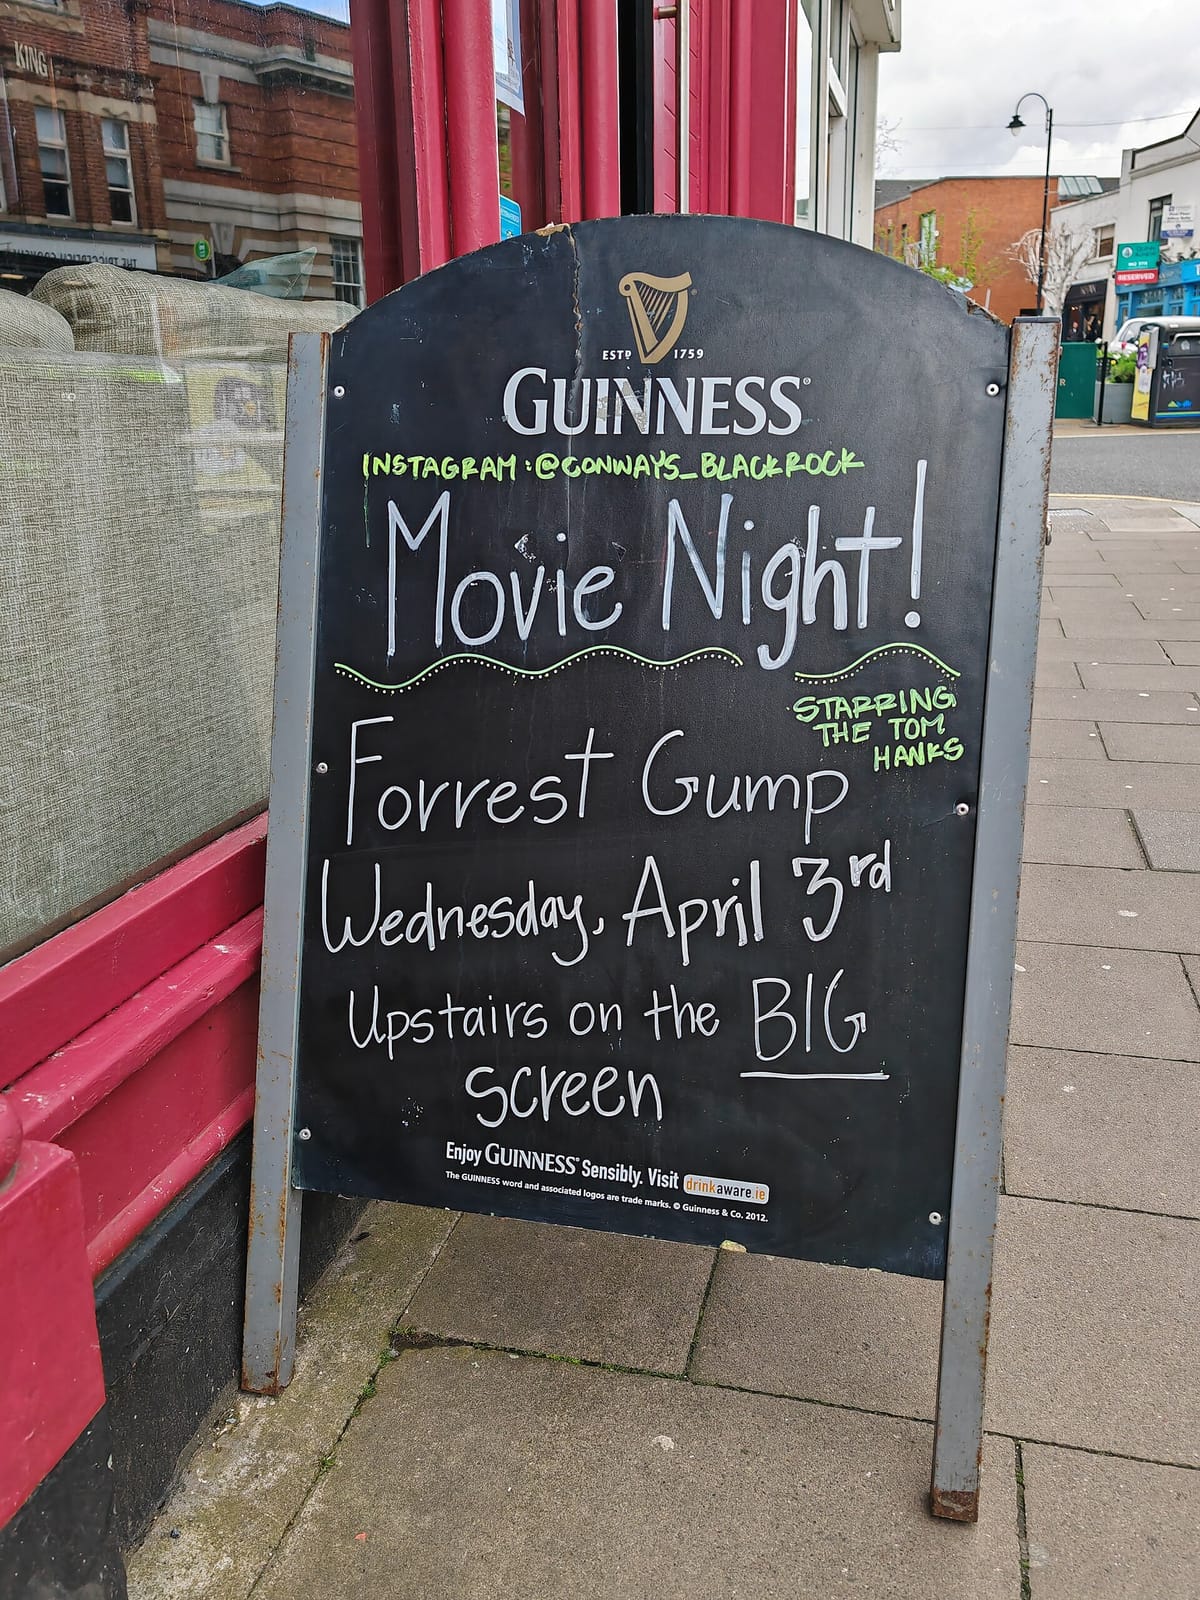 KING
ESTD 1759
GUINNESS®
INSTAGRAM: @CONWAYS_BLACKROCK
Movie Night!
STARRING
THE TOM
HANKS
Forrest Gump
Wednesday, April 3rd
Upstairs on the BIG
screen
Enjoy GUINNESS® Sensibly. Visit drinkaware.ie
The GUINNESS word and associated logos are trade marks. © Guinness & Co. 2012.
RESERVED